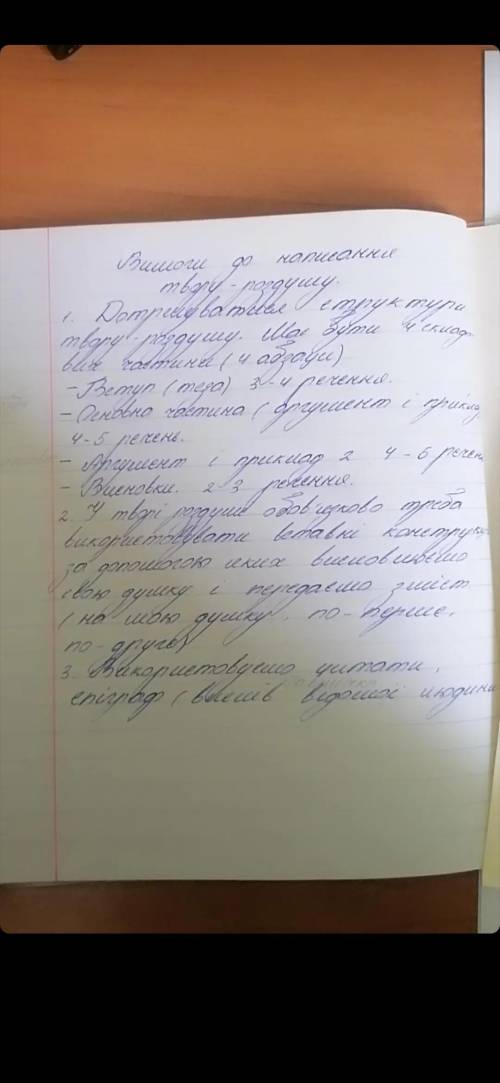 Вимоги до написання
твору-роздуму.
1. Дотримуватися структури
твору-роздуму. Має бути 4 складо
вих частини (4 абзаци)
- Вступ (теза) 3-4 речення.
- Основна частина (аргумент і приклад
4-5 речень.
- Аргумент і приклад 2 4-6 речень
- Висновки. 2-3 речення.
2. У творі роздумі обов'язково треба
використовувати вставні конструкц
за допомогою яких висловлюємо
свою думку і передаємо зміст
(на мою думку, по-перше,
по-друге)
3. Використовуємо цитати,
епіграф (вислів відомої людини